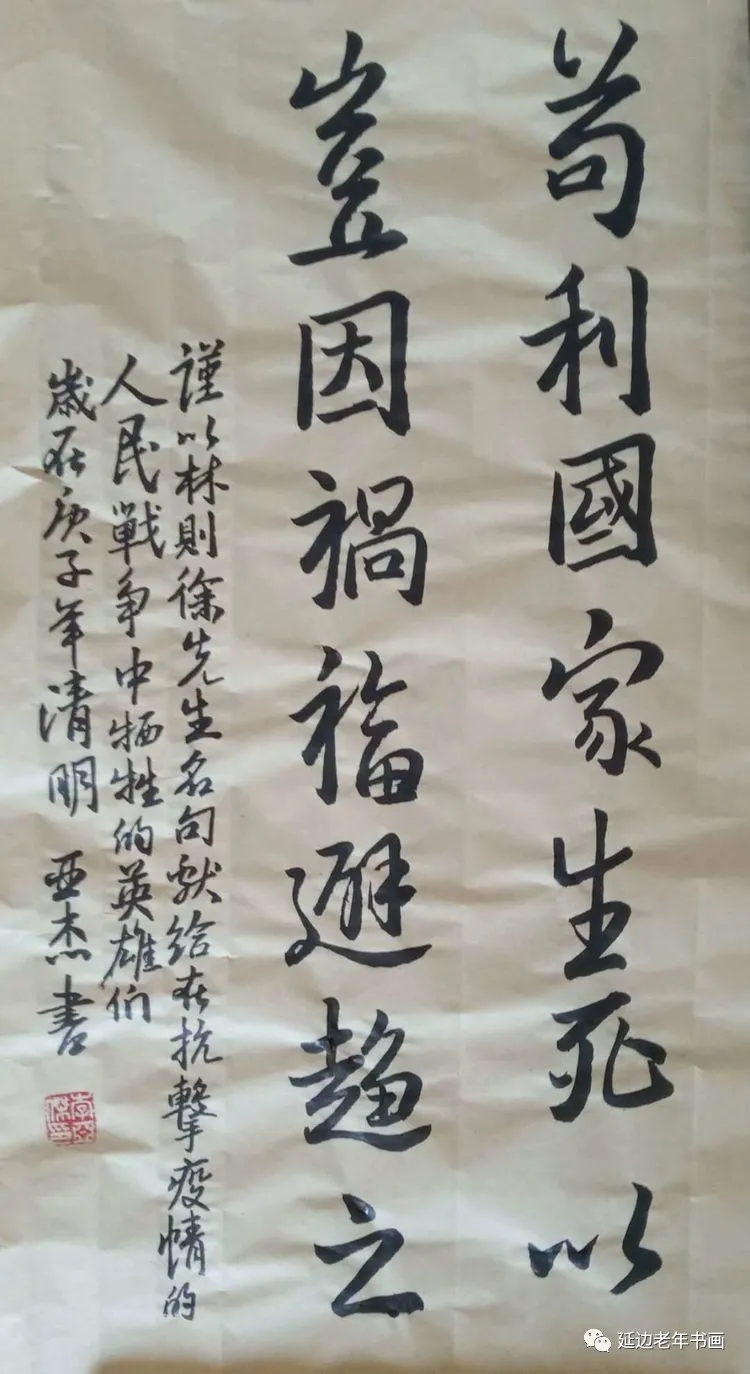 苟利國家生死以
豈因禍福避趨之
謹以林則徐先生名句献给在抗擊疫情的
人民戰争中牺牲的英雄们
歲在庚子年清明 亚杰書
李亞傑印
延边老年书画